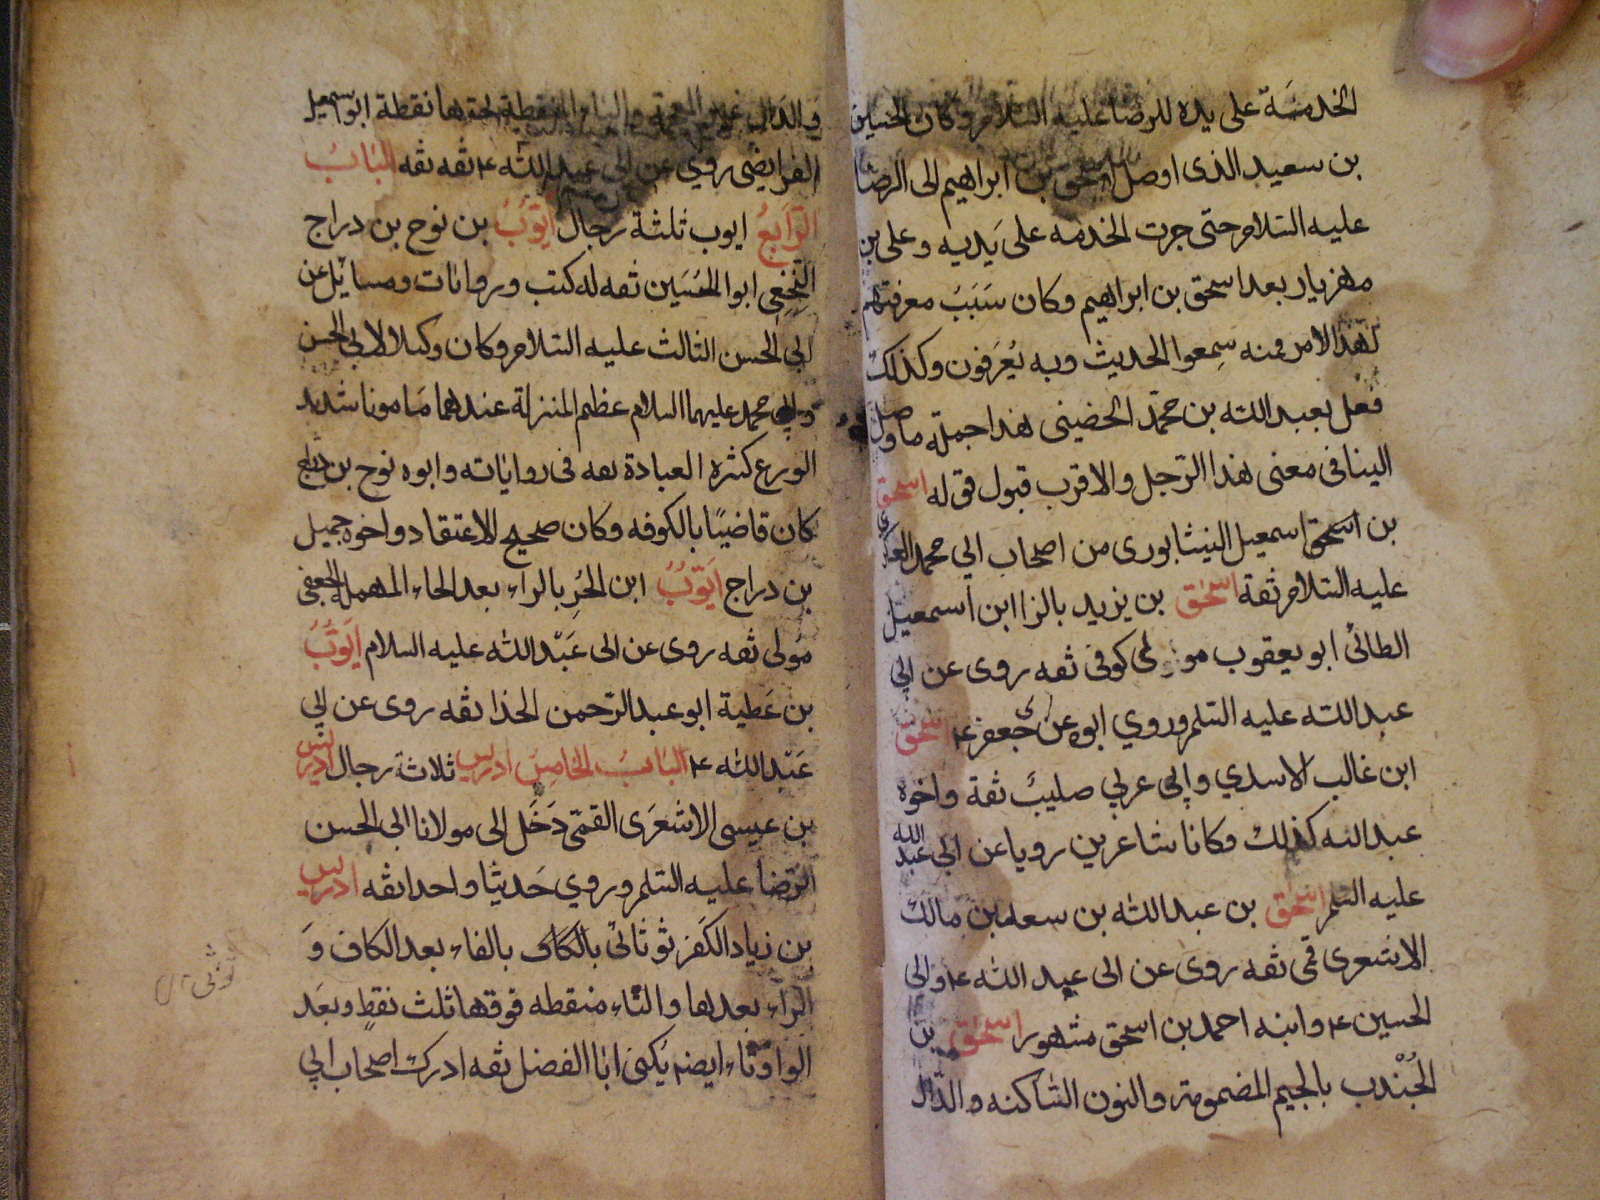 الخدمَة على يده للرضا عليه السّلام وكان الحسين
بن سعيد الذى اوصل اسحق بن ابراهيم الى الرضا
عليه السّلام حتى جرت الخدمه على يَديه وعلى بن
مهزيار بعد اسحق بن ابراهيم وكان سَبَبُ معرفتهم
لهذا الامر فمنه سِمعوا الحديث وبه يُعْرَفون وكذلك
فعل بعبد الله بن محمّد الحضينى هذا جملة ما وصل
الينا فى معنى هذا الرّجل والاقرب قبول قوله اسحق
بن اسحق اسمعيل النيشابورى من اصحاب ابي محمد العسكرى
عليه السّلام ثقة اسحق بن يزيد بالزا ابن اسمعيل
الطائى ابو يعقوب مولى كوفى ثقه روى عن ابي
عبد الله عليه السّلم وروي ابوه عن ابى جعفر ع اسحق
ابن غالب الاسدي والبى عربي صليبٌ ثقة واخوه
عبد الله كذلك وكانا شاعرين رويا عن ابي عبد الله
عليه السّلم اسحق بن عبد الله بن سعد بن مالك
الاشعرى قمى ثقه روى عن ابى عبد الله ع وابى
الحسين ع وابنه احمد بن اسحق مشهور اسحق بن
الجُنْدب بالجيم المضمومة والنون السّاكنه والدّال
والدّال غير المعجمة والباء المنقطة تحتها نقطة ابو اسمعيل
الفرايضى روي عن ابى عبد الله ع ثقه ثقه البَابُ
الرّابعُ ايوب ثلثة رجال ايّوبُ بن نوح بن دراج
النخِعى ابوا الحُسَين ثقه له كتب وروايات ومسايل عن
ابي الحسن الثالث عليه السّلام وكان وكيلا لابي الحسن
وابى محمد عليهما السلام عظيم المنزلة عندهما مَامونا شديد
الورع كثره العبادة ثقه فى رواياته وابوه نوح بن دراج
كان قاضيًا بالكوفه وكان صحيح الاعتقاد واخوه جميل
بن دراج ايّوبُ ابن الحُرِ بالراء بعد الحاء المهمله الجعفى
مُولى ثقه روى عن ابى عَبْد الله عليه السلام ايّوبُ
بن عَطية ابو عبد الرّحمن الحذا ثقه روى عن ابي
عَبْد الله ع البَابُ الخامِسُ ادريس ثلاثة رجال ادريس
بن عيسى الاشعَرَى القمىّ دَخَل الى مولانا ابى الحسن
الرّضا عليه السّلم وروي حَديثا واحدا ثقه ادريس
بن زياد الكَفَر ثوثائى بالكاف بالفاء بعد الكاف وَ
الرّاء بعدها والثاء منقطه فوقها ثلث نقطٍ وبعَد
الواو ثاء ايضم يُكنى ابا الفضل ثقه ادرك اصحاب ابي